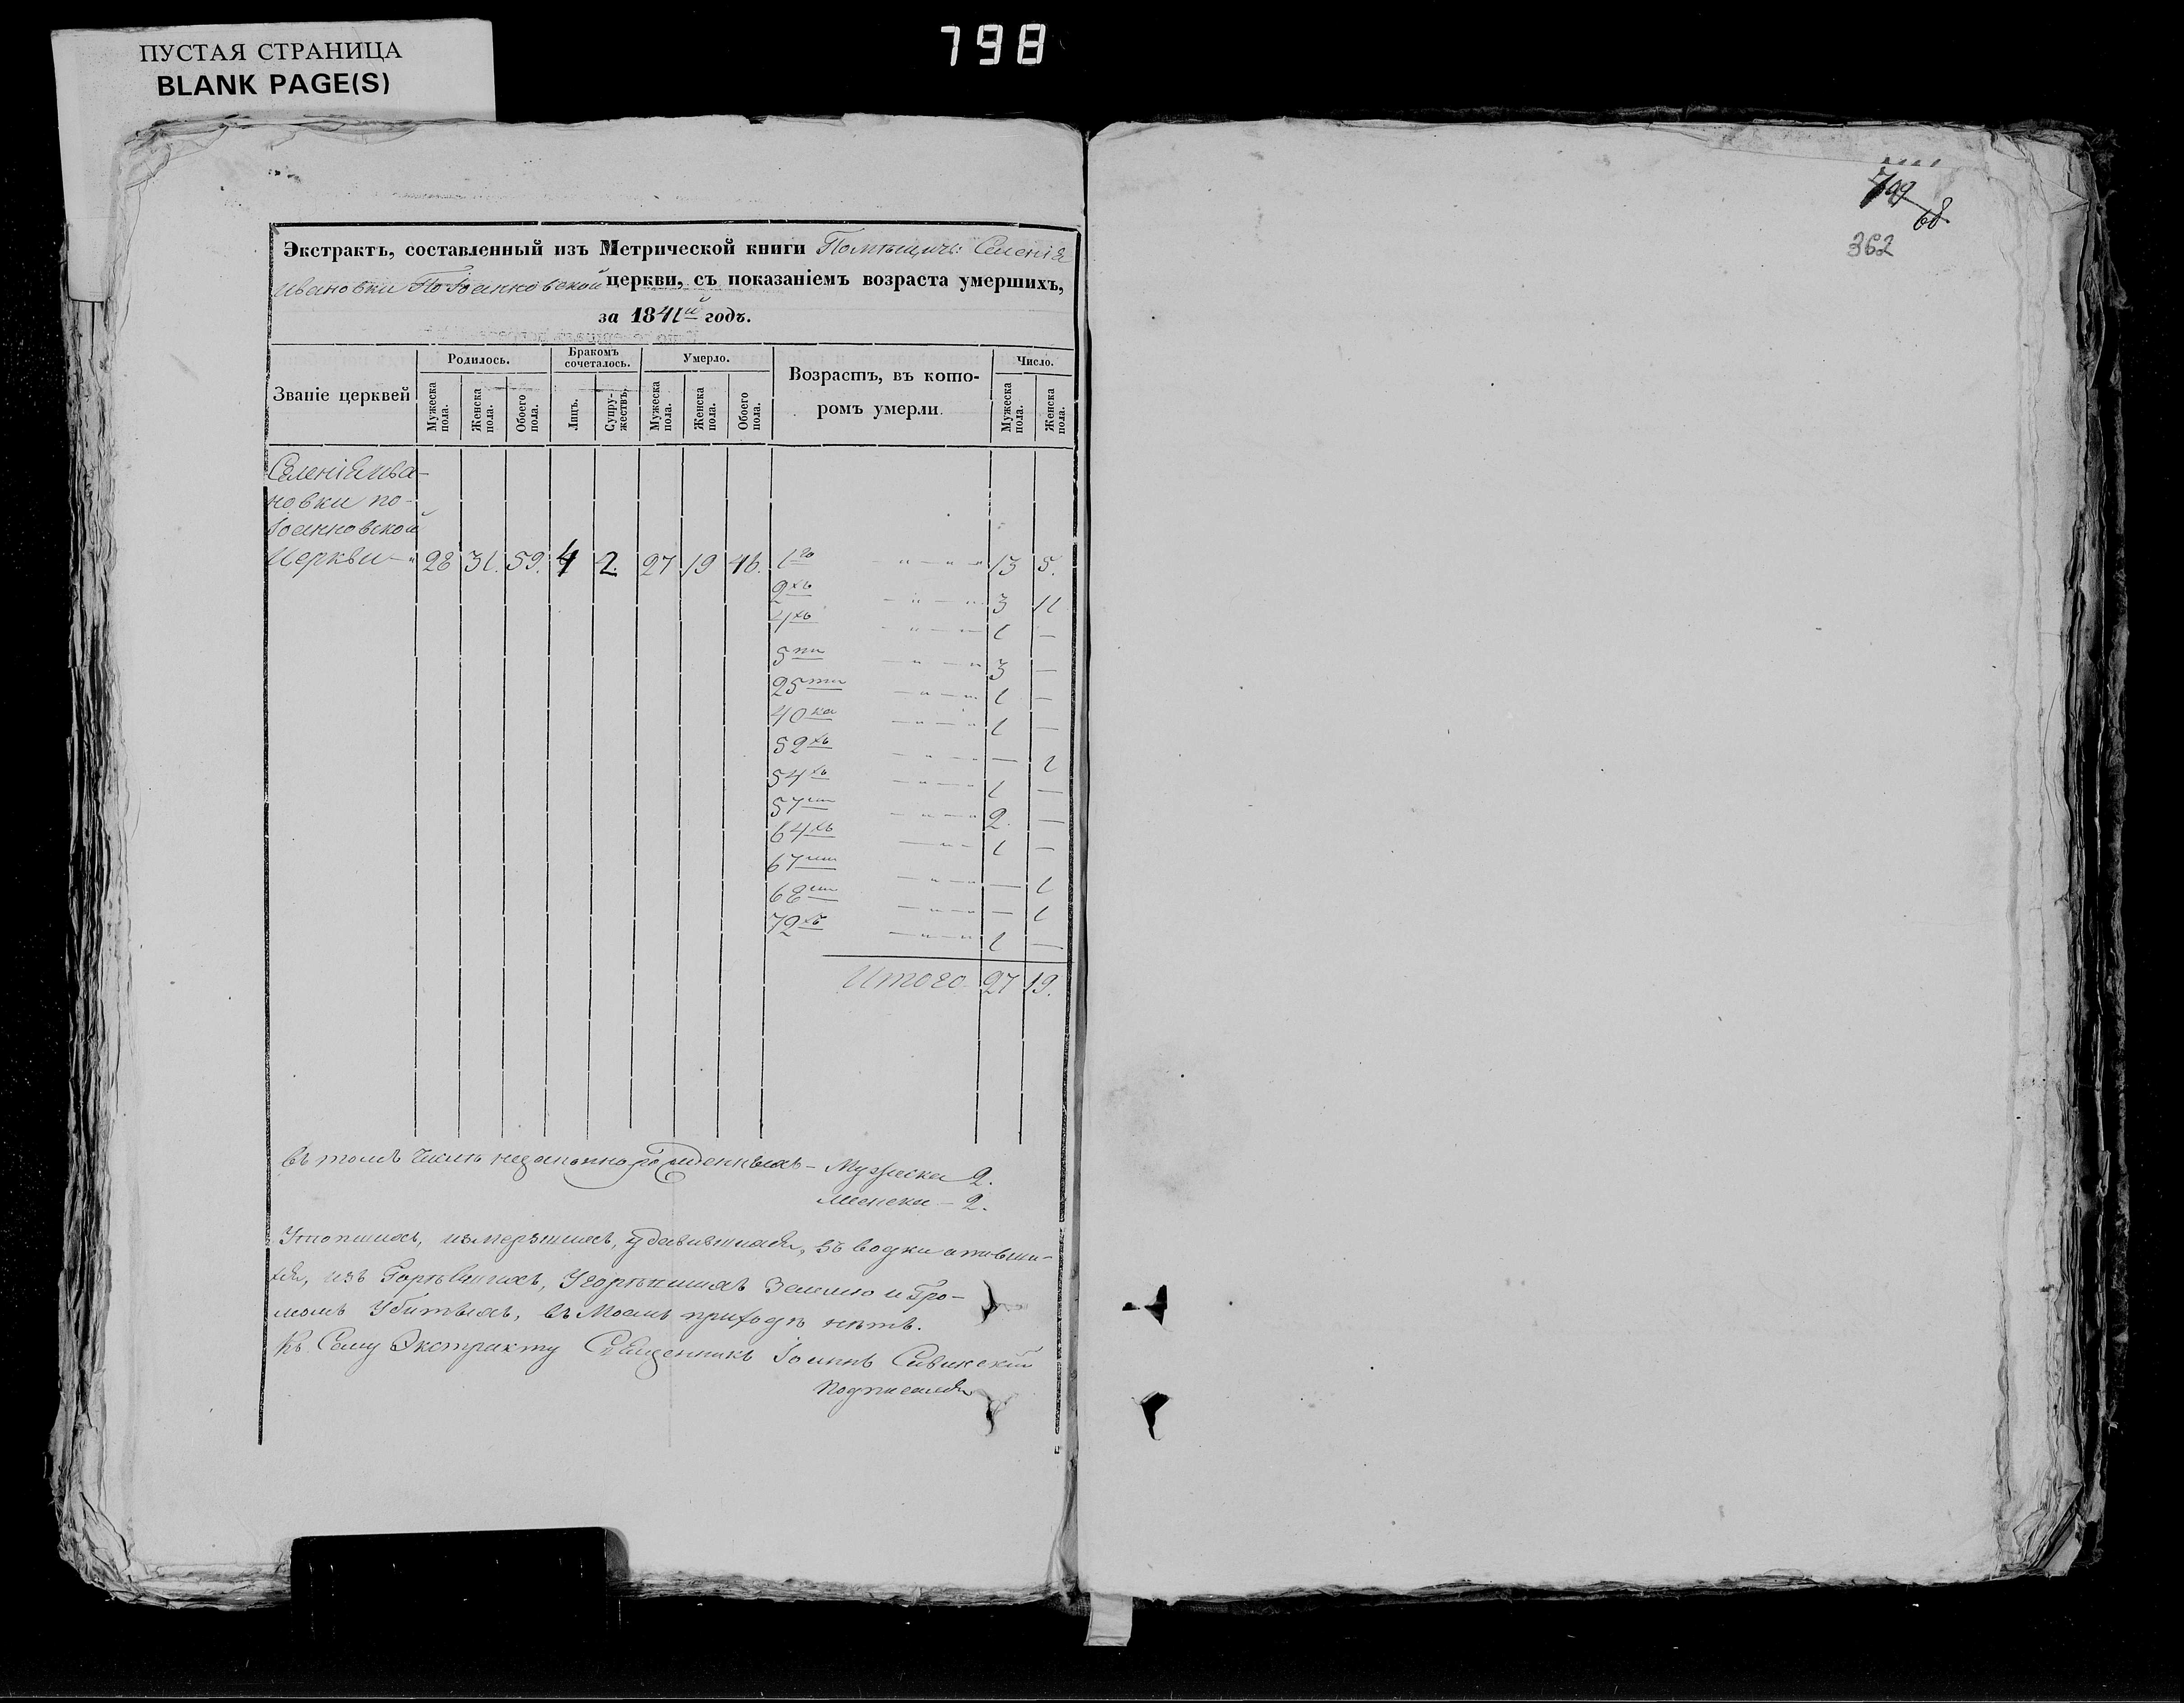 798
ПУСТАЯ СТРАНИЦА
BLANK PAGE(S)
Экстрактъ, составленный изъ Метрической книги Помѣщичь: Селенія
Ивановки По Іоанновской церкви, съ показаніемъ возраста умершихъ,
за 1841й годъ.
Званіе церквей Родилось. Бракомъ сочеталось. Умерло. Возрастъ, въ кото-ромъ умерли. Число.
Мужеска пола. Женска пола. Обоего пола. Лицъ. Супру-жествъ. Мужеска пола. Женска пола. Обоего пола. Мужеска пола. Женска пола.
Селенія Ива-
новки по-
Іоанновской
Церкви - 28 31. 59. 4 2. 27 19 46. 1го - " - " - " 13 5.
2хъ - " - " 3 11
4хъ - " - 1 -
5ти - " - " 3 -
25ти - " - " 1 -
40ка - " - " 1 -
52хъ - " - " - 1
54хъ - " - " 1 -
57ми - " - " 2. -
64хъ - " - 1 -
67ми - " - " - 1
68ми - " - " - 1
72хъ - " - " 1 -
Итого 27 19.
въ томъ числѣ незаконнорожденныхъ - Мужеска 2.
Женска - 2.
Утопшихъ, измерзшихъ, удавившихся, въ водки
изъ Угорѣвшихъ и Гро-
момъ Убитыхъ, въ Моемъ приходѣ нѣтъ.
Къ Сему Экстракту Священникъ Іоаннъ Савинскій
подписался
799
68
362